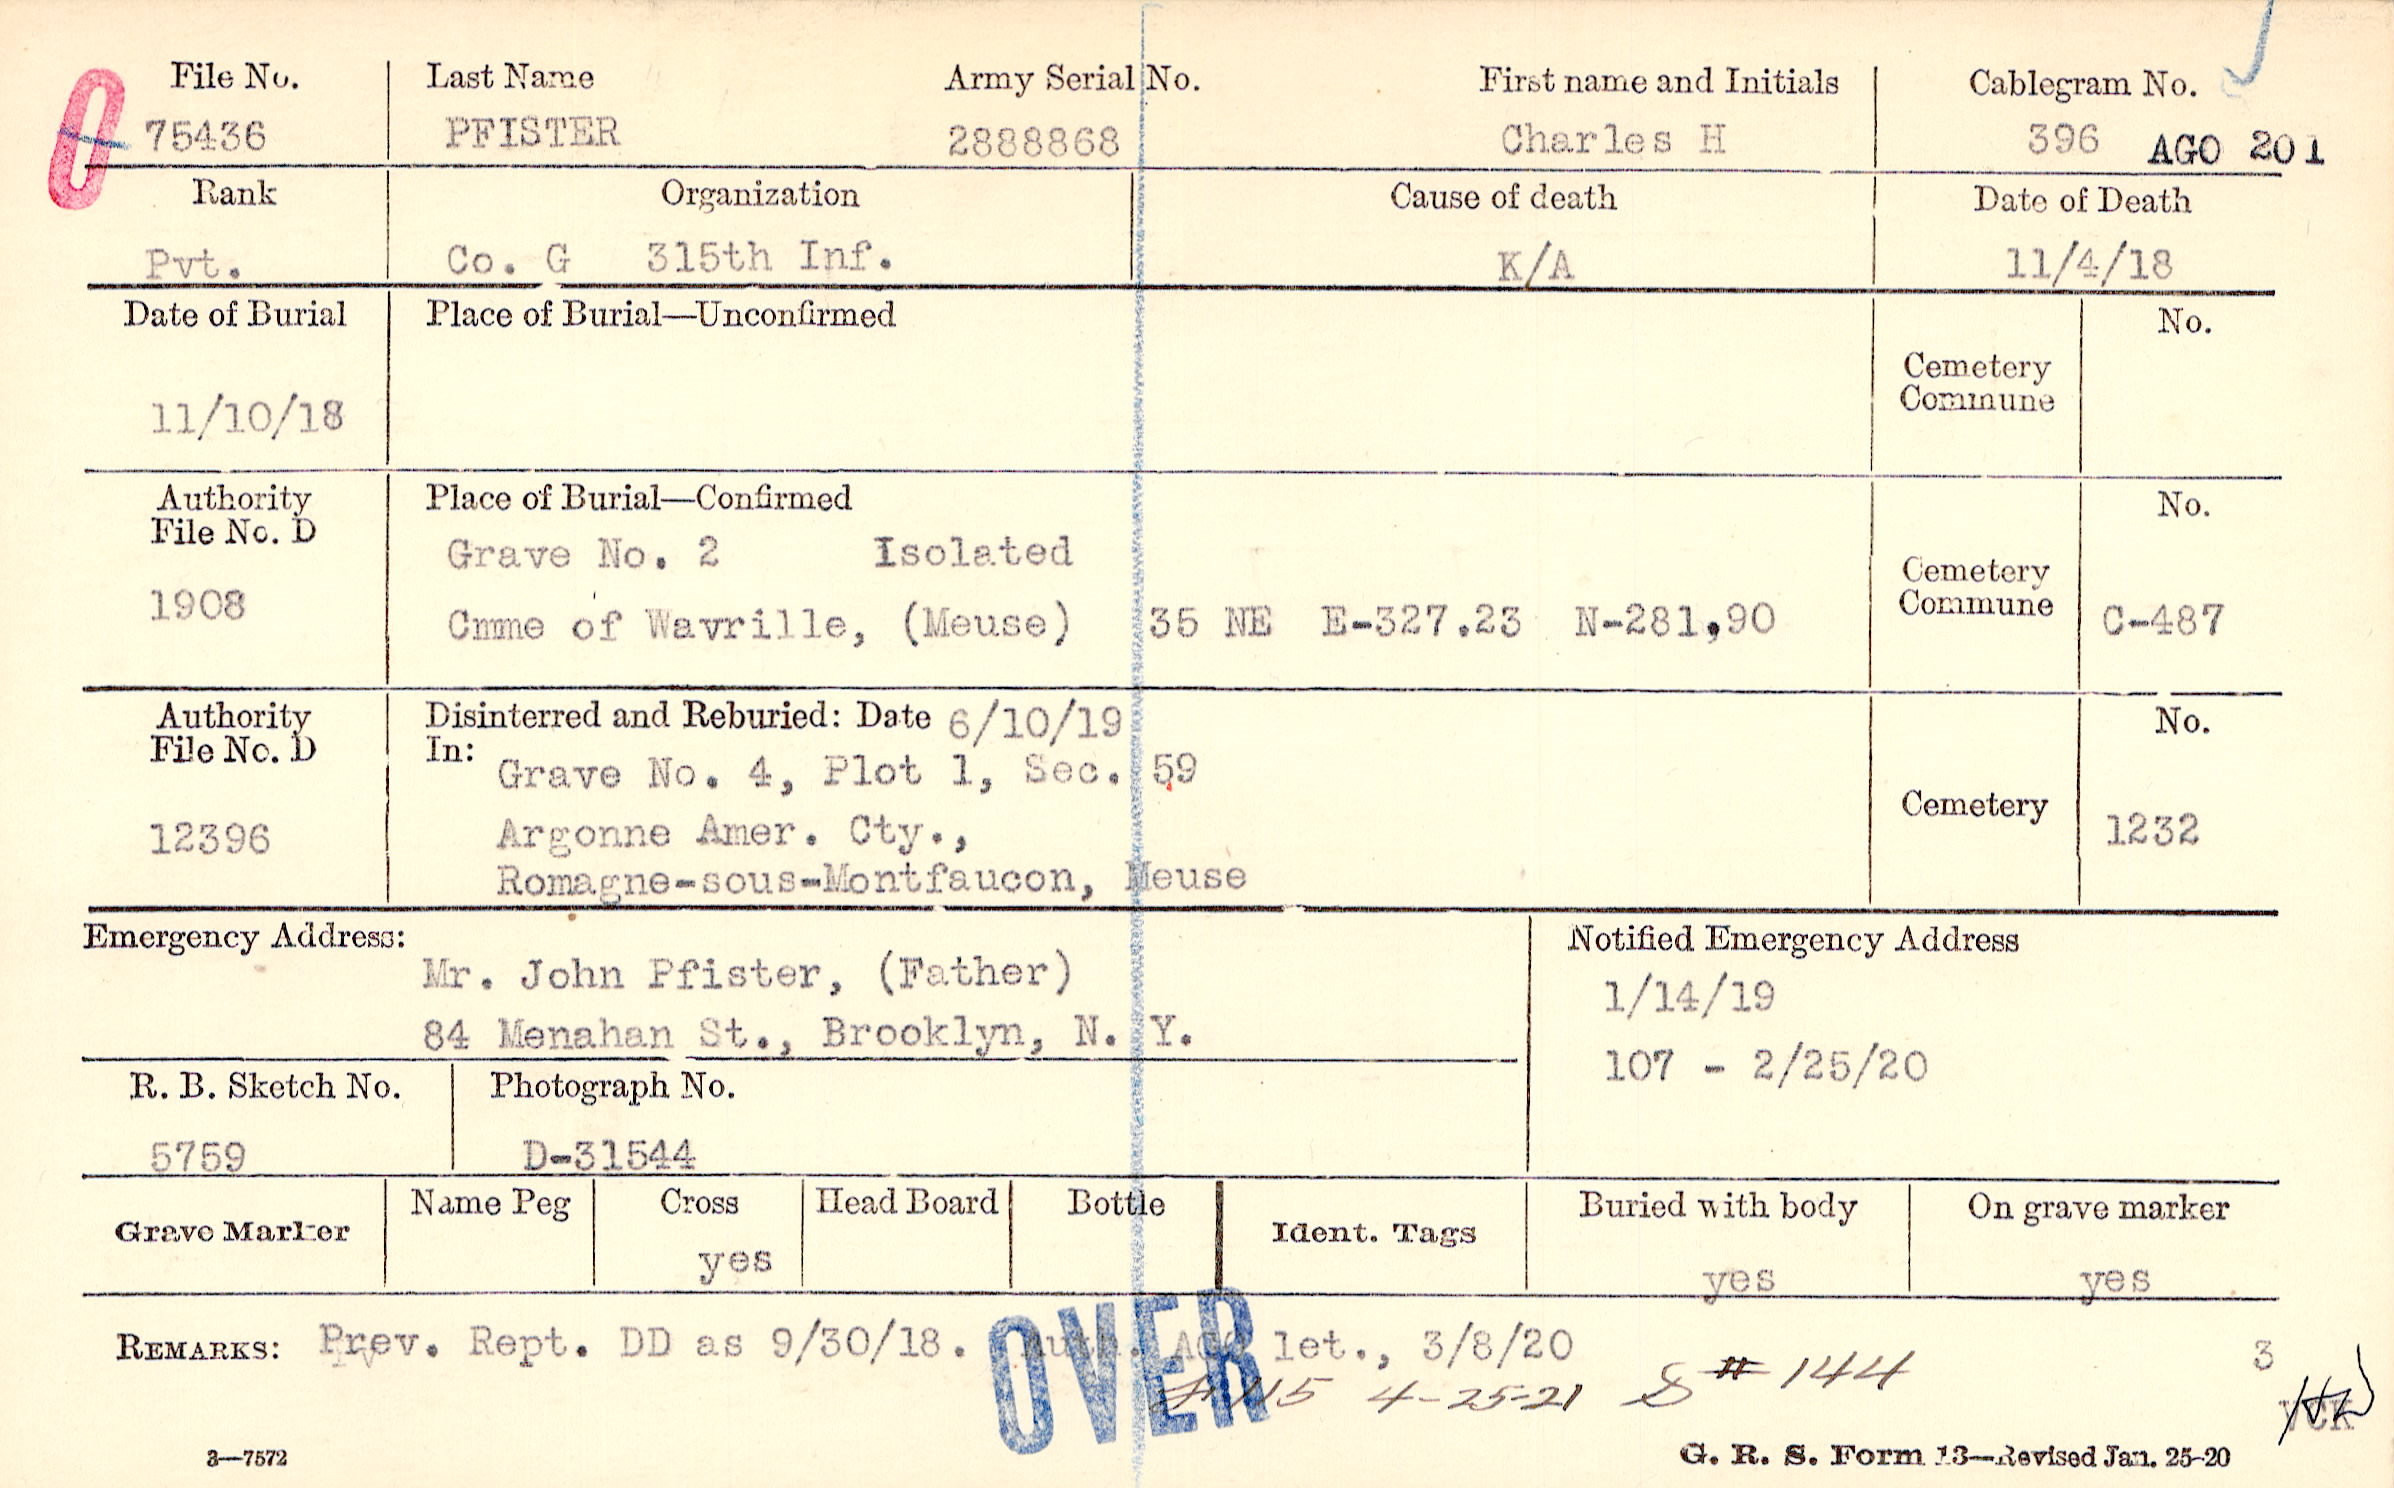 File No. Last Name Army Serial No. First name and Initials Cablegram No.
0 75436 PFISTER 2888868 Charles H 396 AGO 201
Rank Organization Cause of death Date of Death
Pvt. Co. G 315th Inf. K/A 11/4/18
Date of Burial Place of Burial—Unconfirmed No.
Cemetery
Commune
11/10/18
Authority Place of Burial—Confirmed No.
File No. D
Grave No. 2 Isolated
Cemetery
1908 Commune
Cmme of Wavrille, (Meuse) 35 NE E-327.23 N-281.90 C-487
Authority Disinterred and Reburied: Date 6/10/19 No.
File No. D In:
Grave No. 4, Plot 1, Sec. 59
Cemetery
12396 Argonne Amer. Cty., 1232
Romagne-sous-Montfaucon, Meuse
Emergency Address: Notified Emergency Address
Mr. John Pfister, (Father) 1/14/19
84 Menahan St., Brooklyn, N. Y.
107 - 2/25/20
R. B. Sketch No. Photograph No.
5759 D-31544
Name Peg Cross Head Board Bottle Buried with body On grave marker
Grave Marker Ident. Tags
yes yes yes
REMARKS: Prev. Rept. DD as 9/30/18. Auth. AGO let., 3/8/20 3
OVER
115 4-25-21 S # 144
VCK
3—7572 G. R. S. Form 13—Revised Jan. 25-20